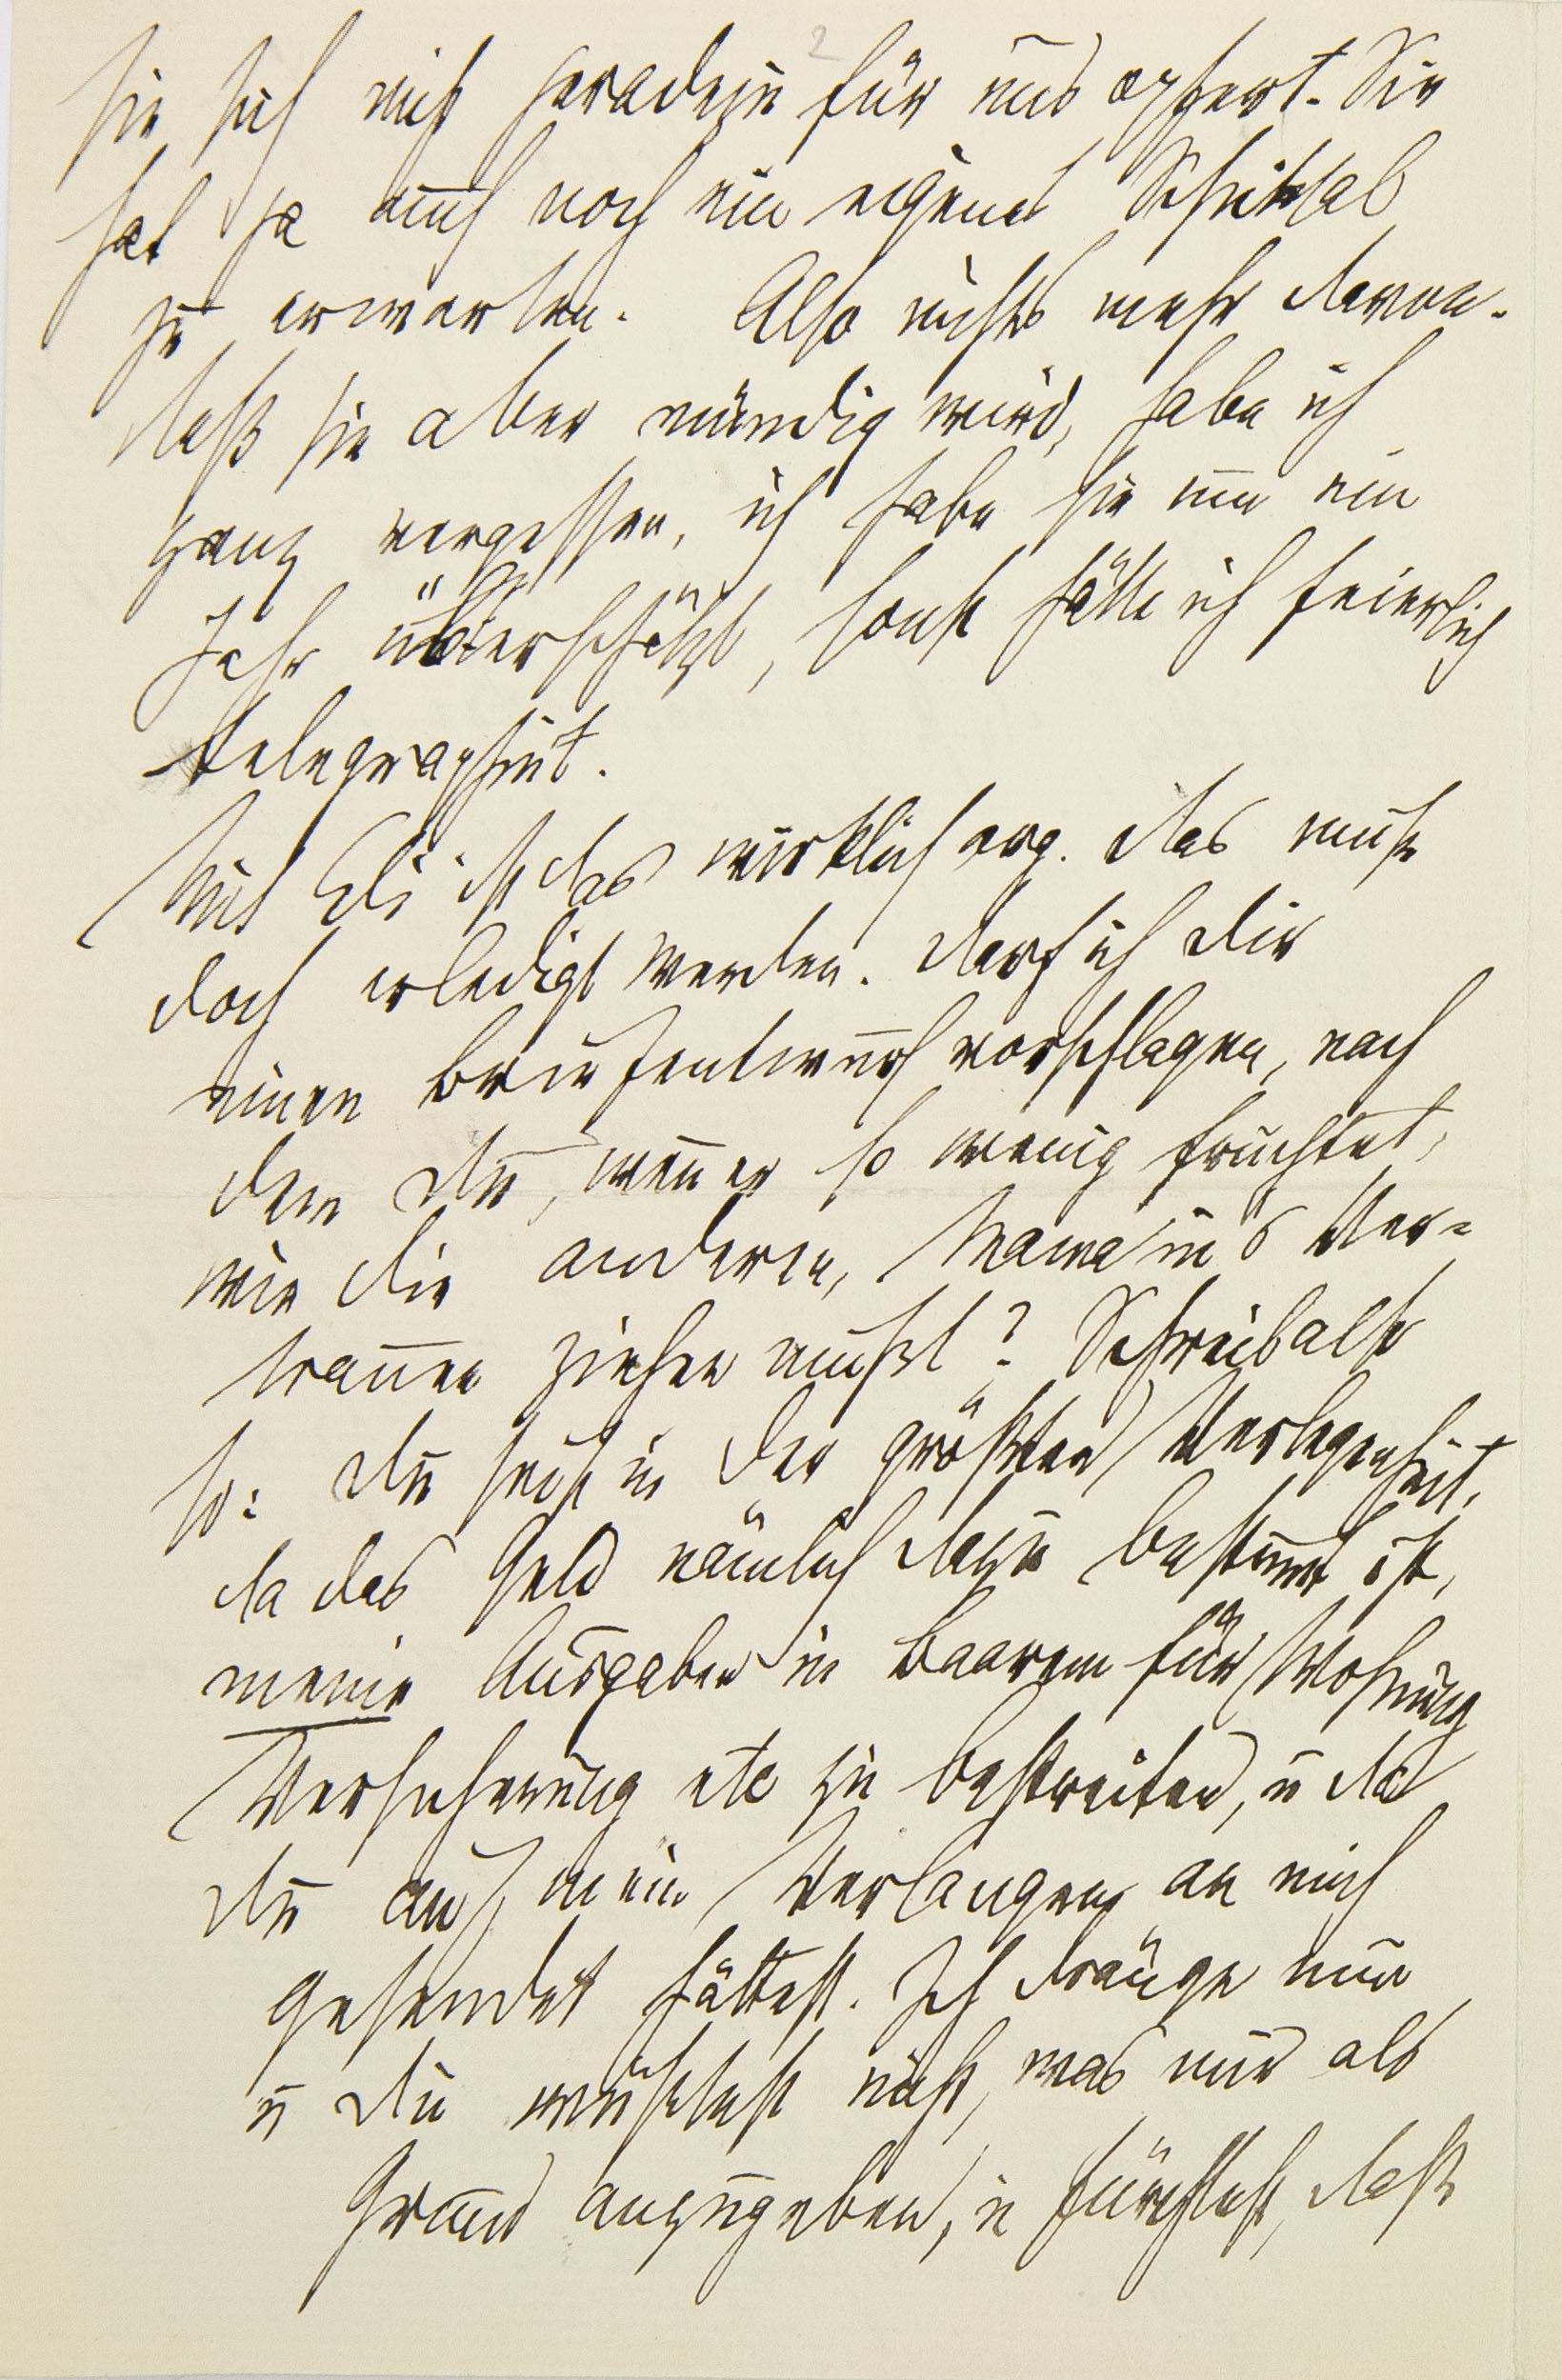 2
sie sich nicht geradezu für uns opfert. Sie
hat ja auch noch ein eigenes Schicksal
zu erwarten. Also nichts mehr davon.
daß sie aber mündig wird, habe ich
ganz vergessen, ich habe sie um ein
Jahr überschätzt, sonst hätte ich feierlich
telegraphirt.
Mit Eli ist das wirklich arg. das muß
doch erledigt werden. darf ich Dir
einen Briefentwurf vorschlagen, nach
dem du, wenn er so wenig fruchtet,
wie die anderen, Mama in's Ver=
trauen ziehen mußt? Schreib also
so: du seist in der größten Verlegenheit,
da das Geld nämlich dazu bestimmt ist,
meine Ausgaben in Baarem für Wohnung
Versicherung etc zu bestreiten, u da
du auf mein Verlangen an mich
gesendet hättest. Ich dränge nun
u du wüßtest nicht, was mir als
Grund anzugeben, u fürchtest, daß